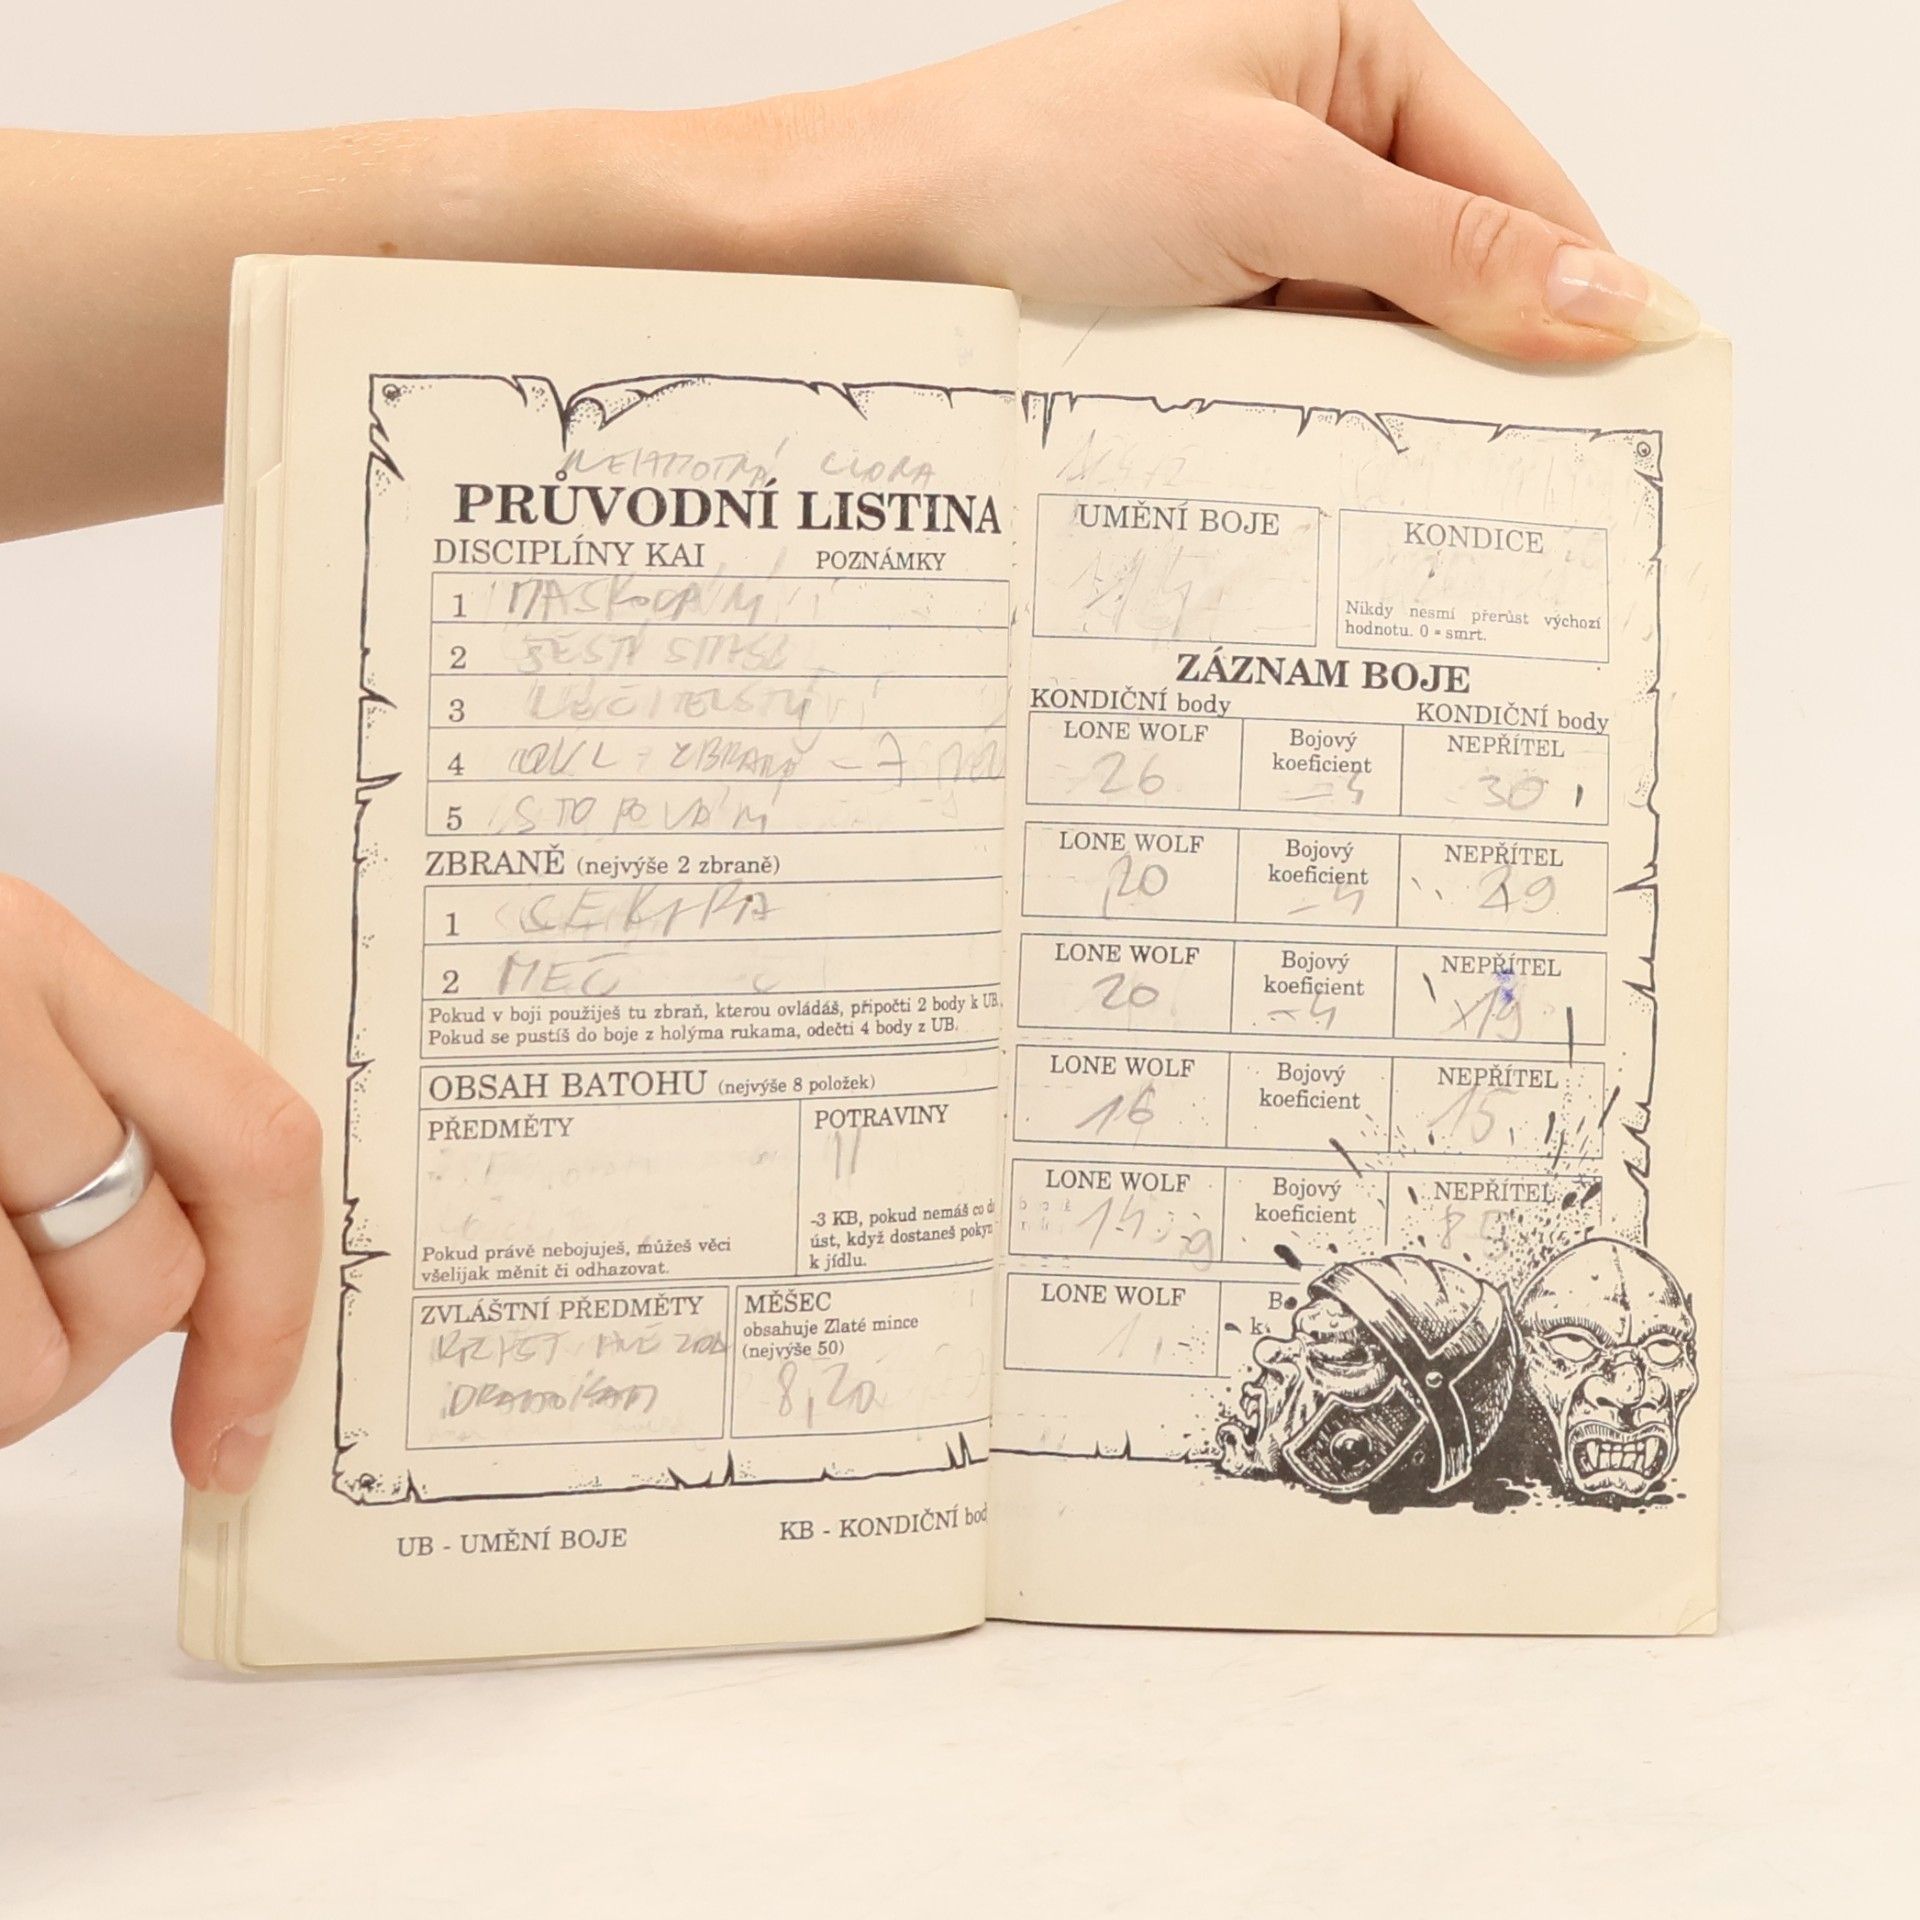 PRŮVODNÍ LISTINA
DISCIPLÍNY KAI POZNÁMKY
1 MASKOVÁNÍ
2 ŠESTÝ SMYSL
3 LÉČITELSTVÍ
4 OVL ZBRANĚ - 7
5 STOPOVÁNÍ
ZBRANĚ (nejvýše 2 zbraně)
1 SEKYRA
2 MEČ
Pokud v boji použiješ tu zbraň, kterou ovládáš, připočti 2 body k UB.
Pokud se pustíš do boje z holýma rukama, odečti 4 body z UB.
OBSAH BATOHU (nejvýše 8 položek)
PŘEDMĚTY
Pokud právě nebojuješ, můžeš věci
všelijak měnit či odhazovat.
POTRAVINY
-3 KB, pokud nemáš co d
úst, když dostaneš pokyn
k jídlu.
ZVLÁŠTNÍ PŘEDMĚTY
MĚŠEC
obsahuje Zlaté mince
(nejvýše 50)
8,20
UB - UMĚNÍ BOJE
KB - KONDIČNÍ bod
UMĚNÍ BOJE
14
KONDICE
Nikdy nesmí přerůst výchozí
hodnotu. 0 = smrt.
ZÁZNAM BOJE
KONDIČNÍ body KONDIČNÍ body
LONE WOLF Bojový koeficient NEPŘÍTEL
26 -4 30
LONE WOLF Bojový koeficient NEPŘÍTEL
20 -4 29
LONE WOLF Bojový koeficient NEPŘÍTEL
20 -4 19
LONE WOLF Bojový koeficient NEPŘÍTEL
16 15
LONE WOLF Bojový koeficient NEPŘÍTEL
14 9
LONE WOLF